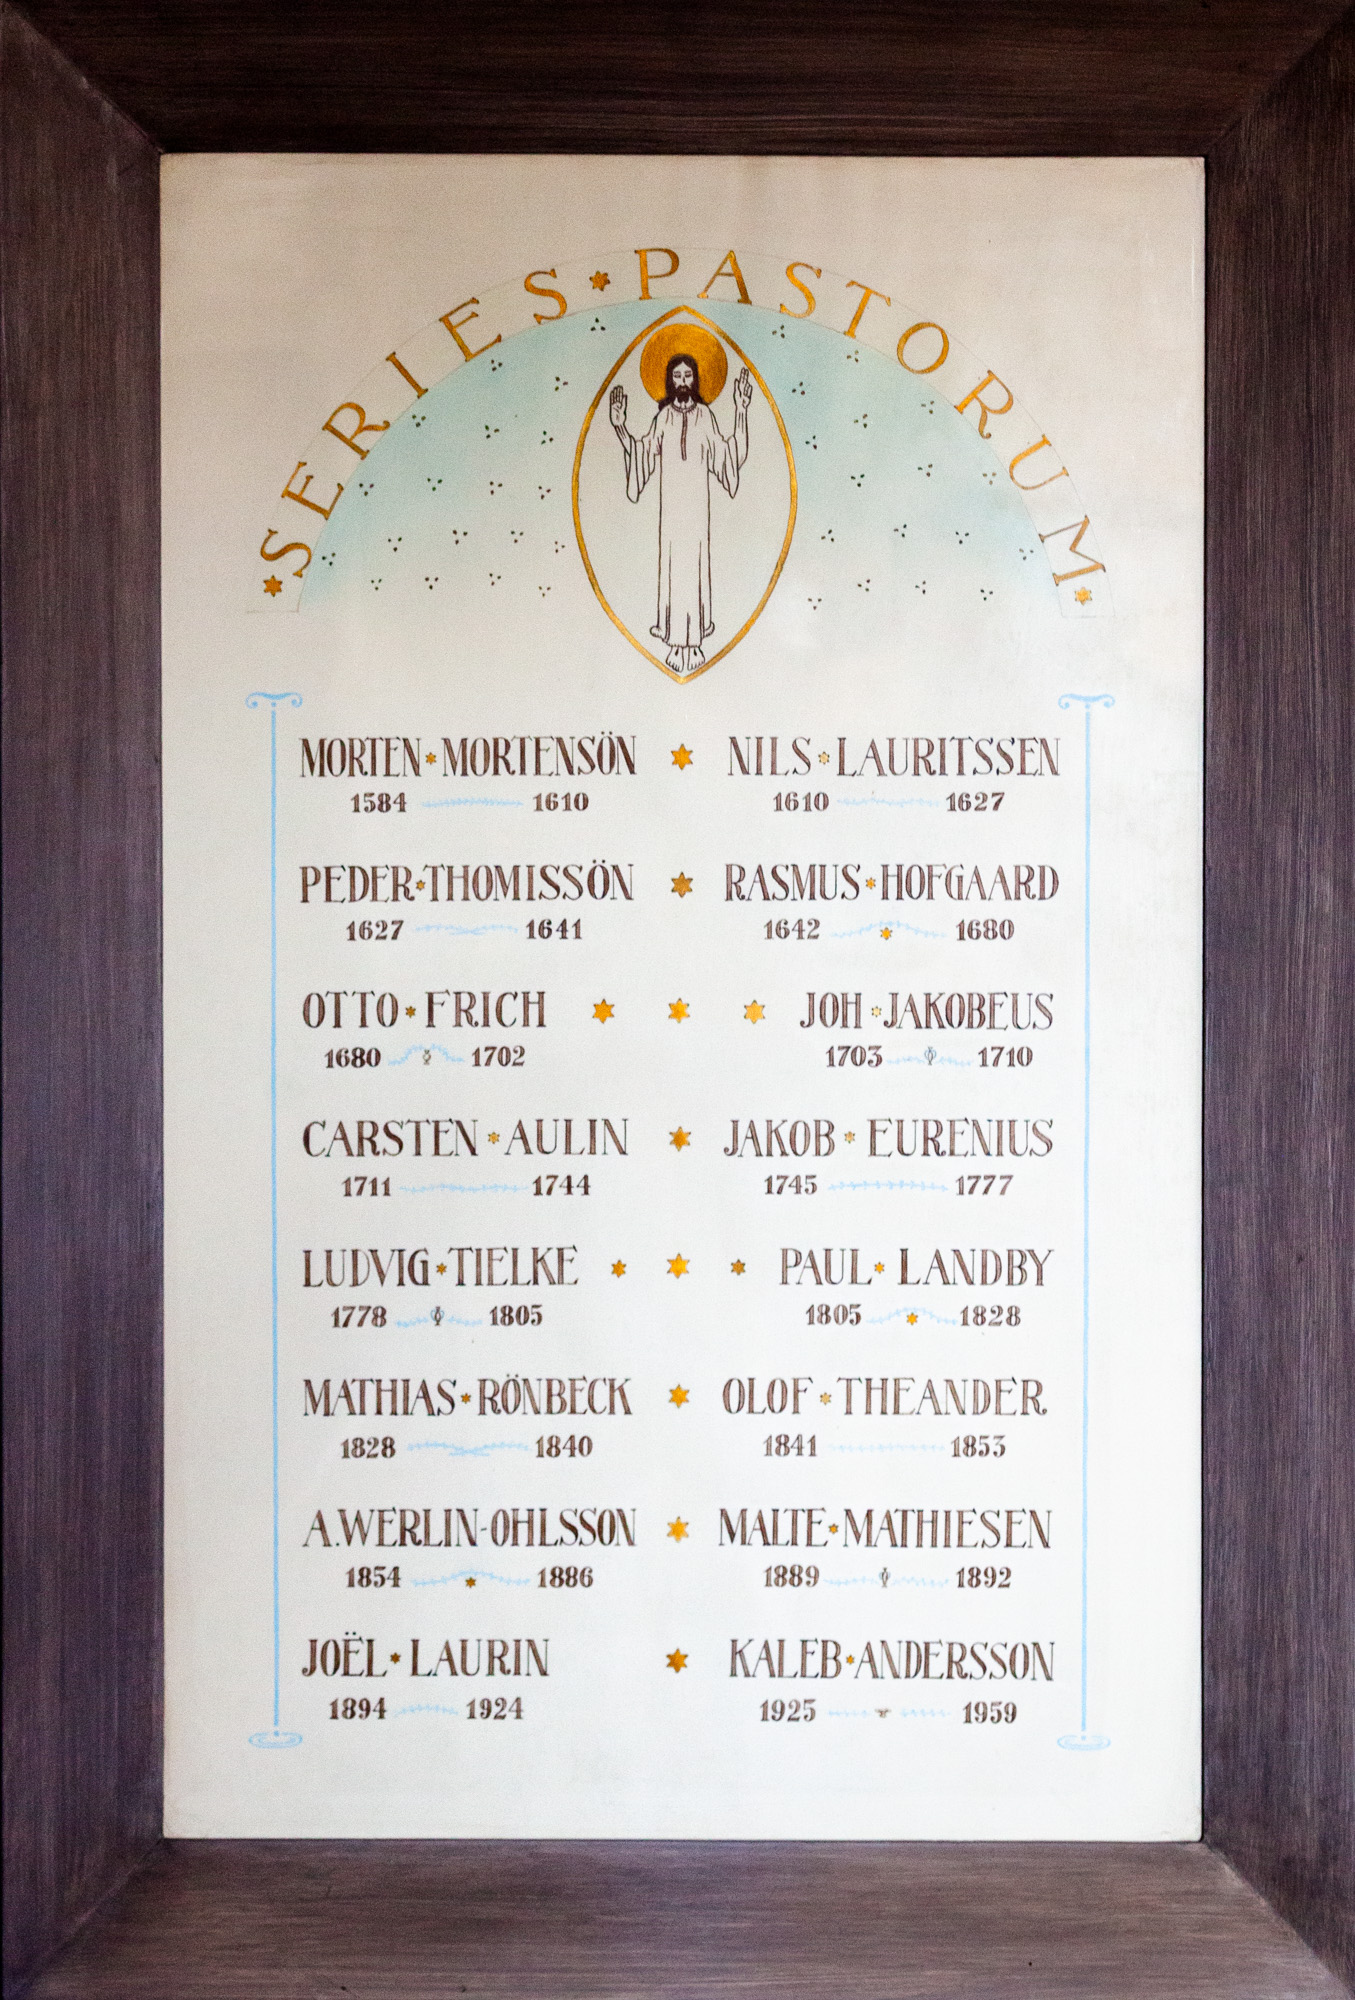 SERIES PASTORUM
MORTEN MORTENSÖN NILS LAURITSSEN
1584 1610 1610 1627
PEDER THOMISSÖN RASMUS HOFGAARD
1627 1641 1642 1680
OTTO FRICH JOH JAKOBEUS
1680 1702 1703 1710
CARSTEN AULIN JAKOB EURENIUS
1711 1744 1745 1777
LUDVIG TIELKE PAUL LANDBY
1778 1805 1805 1828
MATHIAS RÖNBECK OLOF THEANDER
1828 1840 1841 1853
A.WERLIN-OHLSSON MALTE MATHIESEN
1854 1886 1889 1892
JOËL LAURIN KALEB ANDERSSON
1894 1924 1925 1959